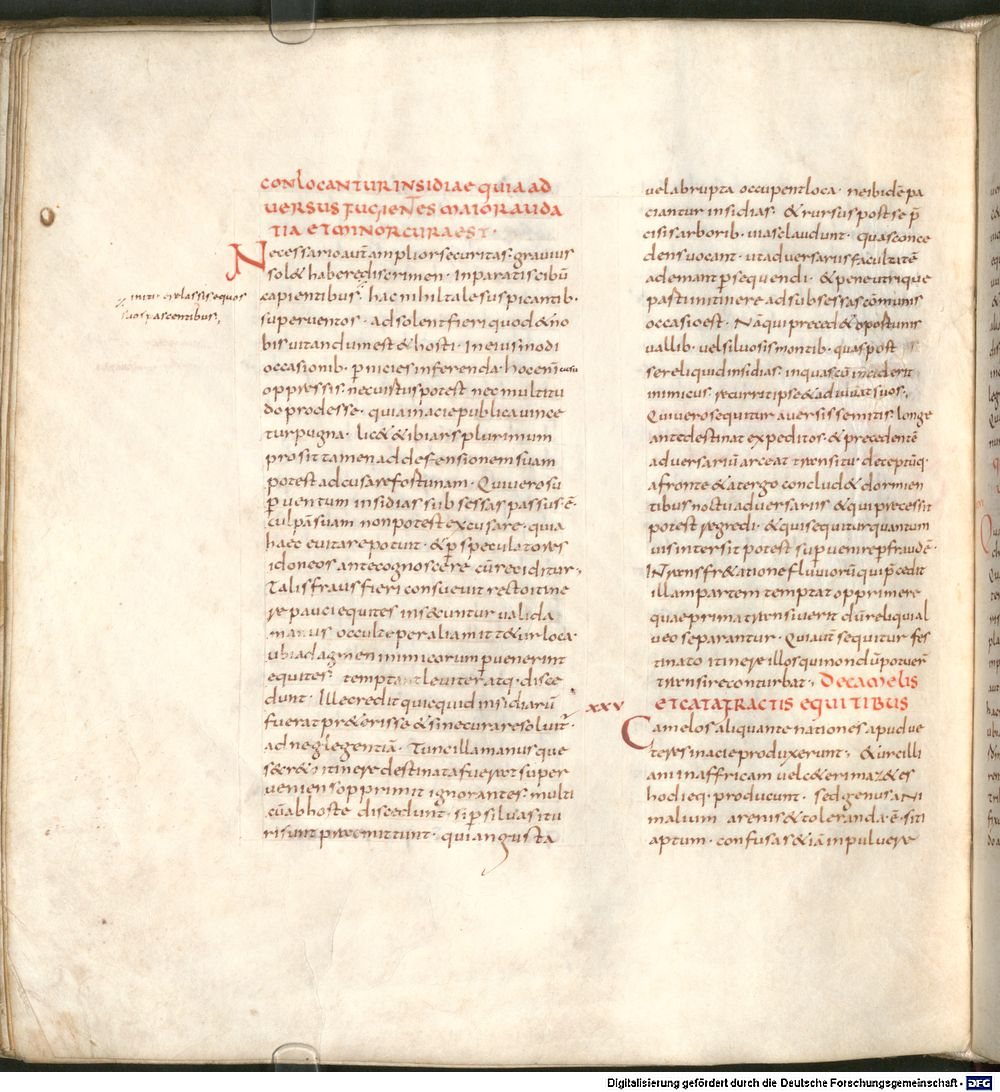 conlocantur insidiae quia ad
versus fugientes maior auda
tia et minor cura est·
Necessario aut̄ amplior securitas gravius
sol& habere discrimen· Inparatis cibū
capientibus· hac nihil tale suspicantib·
superventos· adsolent fieri quod & no
bis vitandum est & hosti· Ineiusmodi
occasionib· p̄nicies inferenda· hoc enī casu
oppressis· nec virtus potest nec multitu
do prodesse· quia in acie publica vince
tur pugna· lic& & ibi ars plurimum
prosit tamen ad defensionem suam
potest adcusare fortunam· Qui vero su
p̄ventum insidias subsessas passus· ē·
culpā suam non potest excusare· quia
haec evitare potuit· & p̄ speculatores
idoneos ante cognoscere cū reciditur;
Talis fraus fieri consuevit recto itine
re pauci equites insecuntur valida
manus occulte per alia mittetur loca·
ubi ad agmen inimicorum p̄venerint
equites· temptant leviter atq· disce
dunt· Ille credit quicquid insidiarū
fuerat pr&erisse & sine cura resolvit̄·
ad neglegentiā· Tunc illa manus que
secr&o itinere destinata fuerat super
veniens opprimit ignorantes· multi
cū ab hoste discedunt· si p̄ silvas itu
ri sunt praemittunt· qui angusta
⁒ initur ex lassis equos
suos pascentibus;
vel abrupta occupent loca· ne ibidē pa
ciantur insidias· & rursus post se p̄
cisis arborib· vias claudunt· quas conce
dens vocant· ut adversariis facultatē
ademant p̄sequendi· & pene utrique
pasti in itinere ad subsessas cōmunis
occasio est· Nā qui preced& oportunis
vallib· vel silvosis montib· quas post
se reliquid insidias· in quas cū inciderit
inimicus· recurrit ipse & adiuvat suos;
Qui vero sequitur aversis semitis· longe
ante destinat expeditos· & precedentē
adversariū arceat transitu· deceptūq·
a fronte & a tergo conclud& dormien
tibus noctu adversariis & qui precessit
potest regredi· & qui sequitur quantum
vis intersit potest sup̄venire p̄ fraudē·
In transfr&atione fluviorū qui p̄cedit
illam partem temptat opprimere
quae prima transiverit dū reliqui al
veo separantur· Qui aut̄ sequitur fes
tinato itinere illos qui nondū potuer̄
transire conturbat· De camelis
xxv et catafractis equitibus
Camelos aliquante nationes apud ve
teres in acie produxerunt· & urcilli
ani in affricam vel c&eri maz&es
hodieq· producunt· sed genus ani
malium arenis & toleranda· ē· siti
aptum· confusas & iā in pulvere
Digitalisierung gefördert durch die Deutsche Forschungsgemeinschaft - DFG